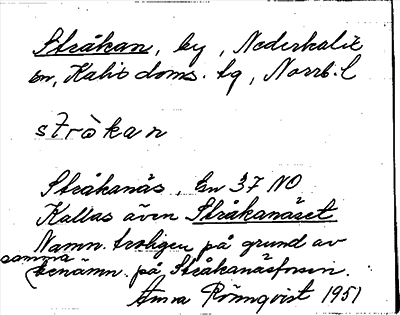 Stråkan, by, Nederkalix
sn, Kalix doms. tg, Norrb. l
stràkan
Stråkanäs, Gn 37 NO
Kallas även Stråkanäset
Namn. troligen på grund av
samma benämn. på Stråkanäsforsen.
Anna Rönnqvist 1951